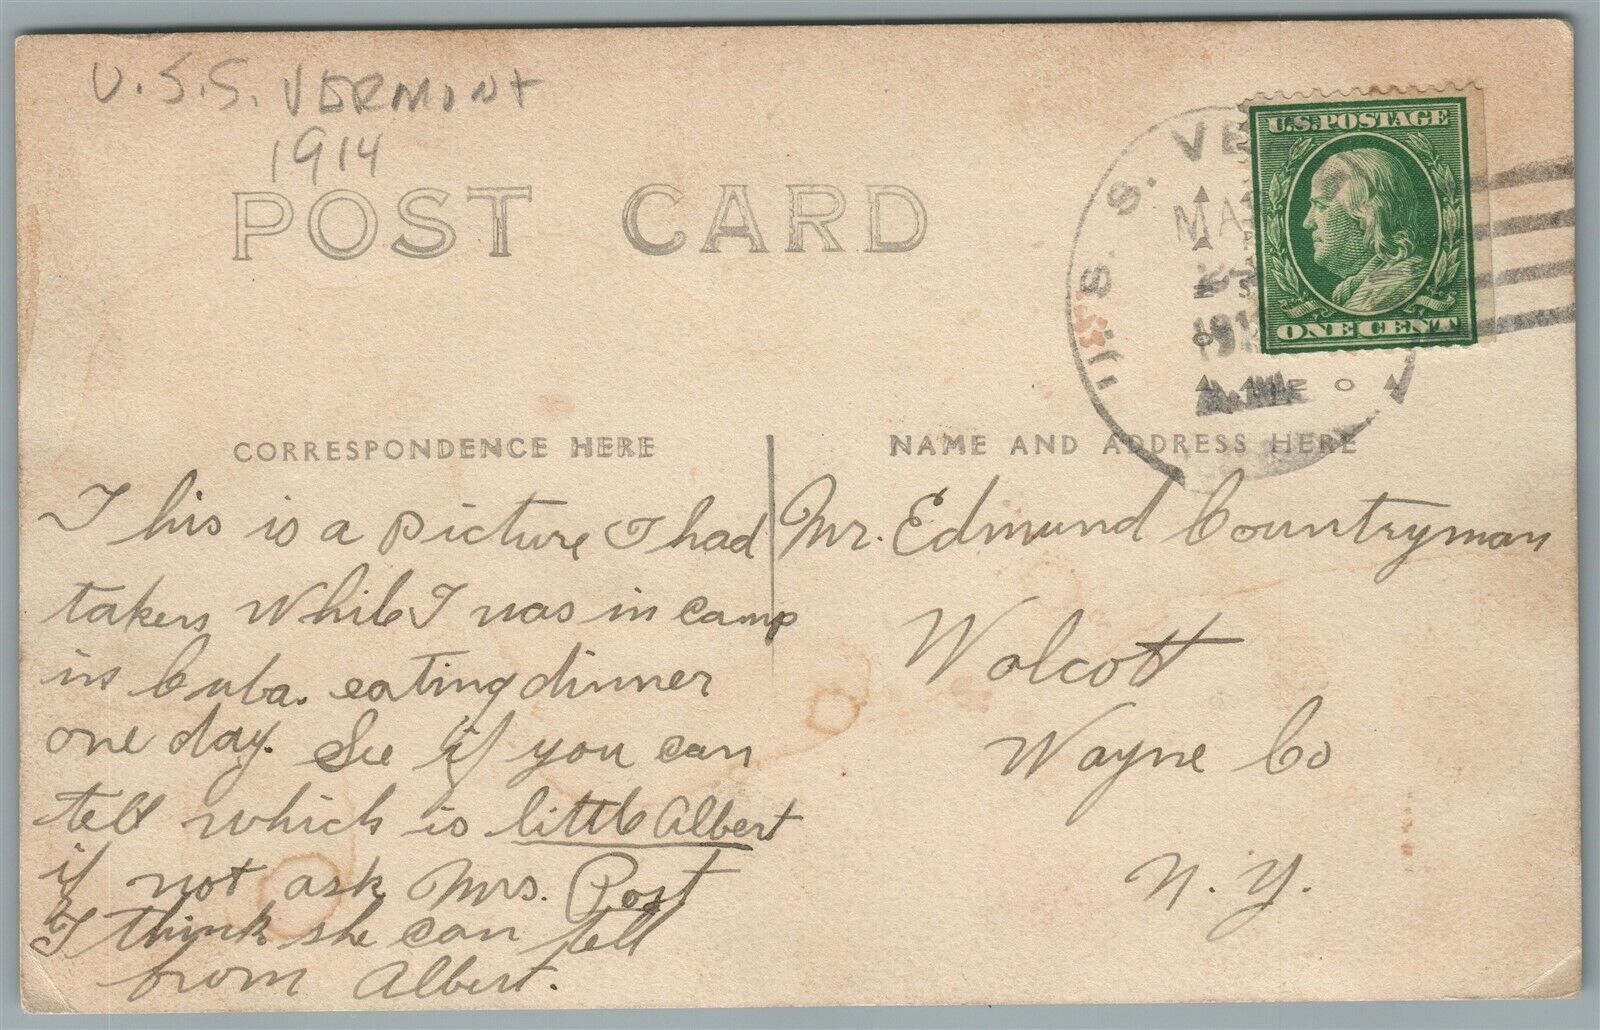 U.S.S. VERMONT
1914
POST CARD
U.S.POSTAGE
ONE CENT
U. S. S. VE
MA
191
CORRESPONDENCE HERE
NAME AND ADDRESS HERE
This is a picture I had
taken while I was in camp
in Cuba. eating dinner
one day. See if you can
tell which is little Albert
if not ask Mrs. Post
I think she can tell
from Albert.
Mr. Edmund Countryman
Wolcott
Wayne Co
N. Y.